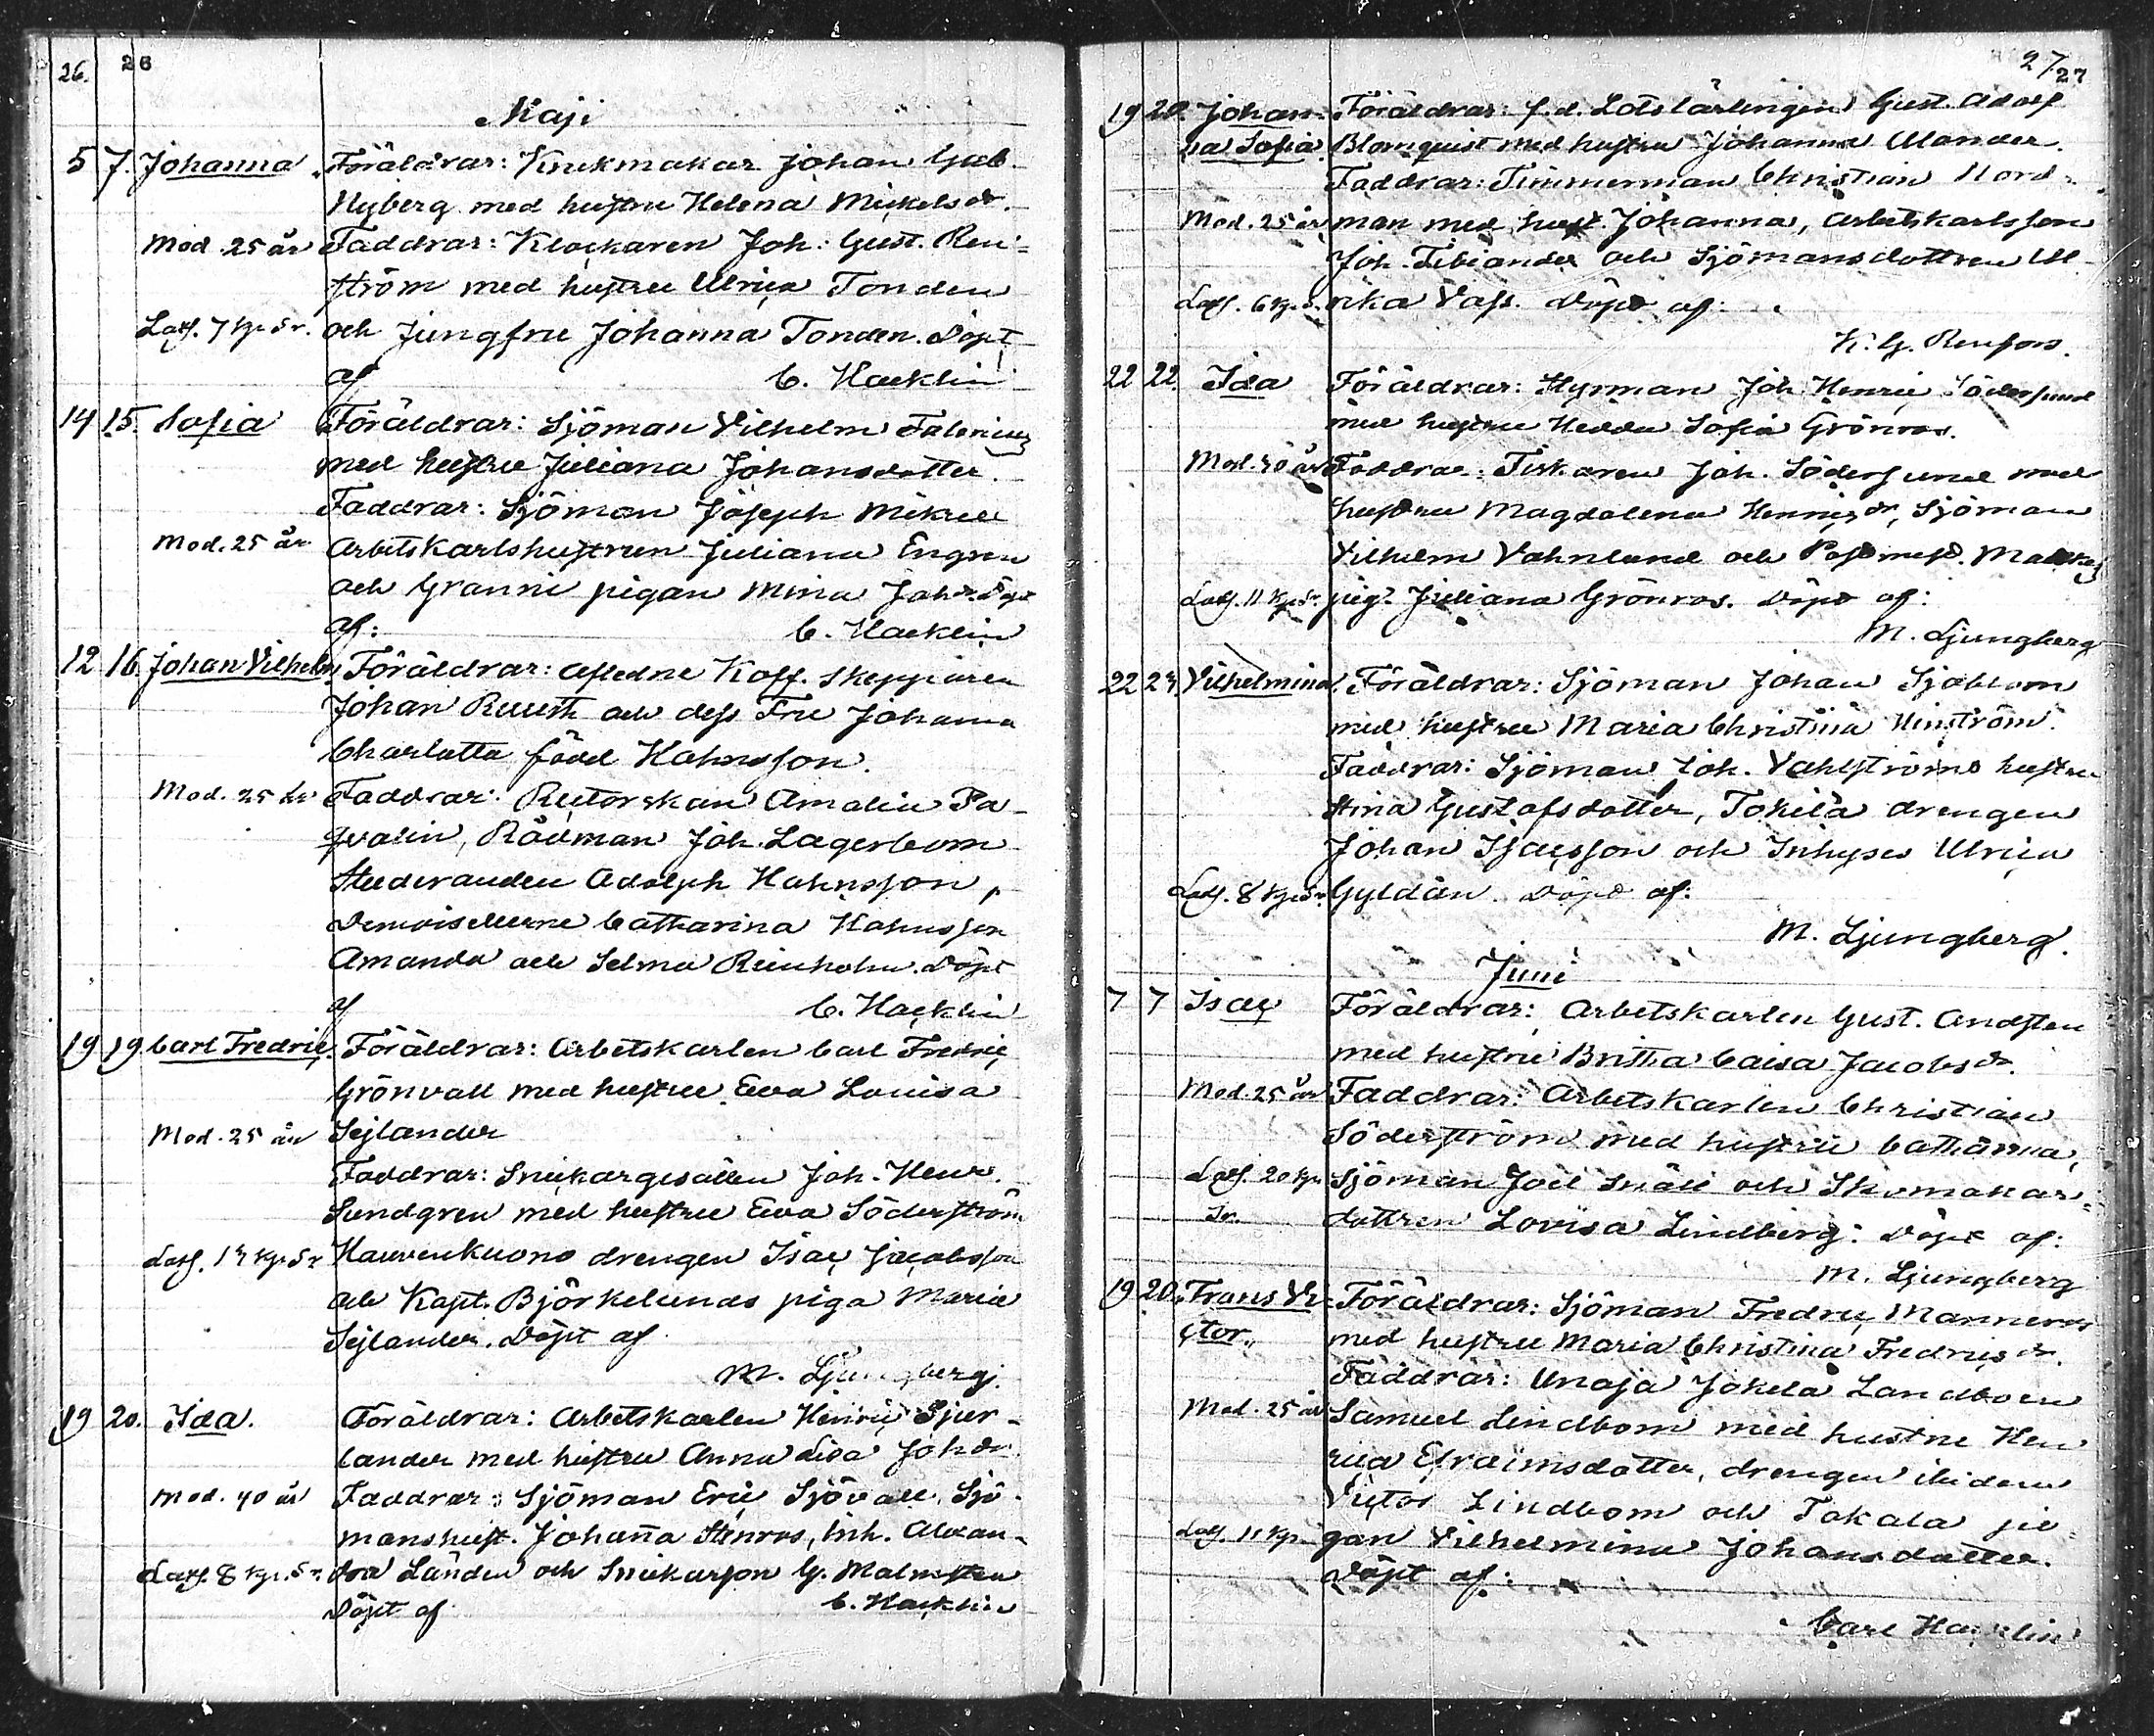 26. 26
Maji
5 7. Johanna Föräldrar: Krukmakar Johan Gust.
Nyberg med hustru Helena Mickelsdr.
Mod. 25 år Faddrar: Klockaren Joh. Gust. Ren-
ström med hustru Ulrica Tonden
Lösf. 7 kp. Sr. och Jungfru Johanna Tonden. Döpt
af C. Hacklin
14 15. Sofia Föräldrar: Sjöman Vilhelm Falenius
med hustru Juliana Johansdotter.
Faddrar: Sjöman Joseph Mikael
Mod. 25 år Arbetskarlshustrun Juliana Engren
och Granni pigan Mina Johdr. Döpt
af: C. Hacklin
12 16. Johan Vilhelm Föräldrar: Afledne Koff. Skepparen
Johan Ruuth och dess Fru Johanna
Charlotta född Hahnsson.
Mod. 25 år Faddrar: Rectorskan Amalia Pa-
qvalin, Rådman Joh. Lagerbom
Studeranden Adolph Hahnsson,
Demoisellerne Catharina Hahnsson
Amanda och Selma Reinholm. Döpt
af C. Hacklin
19 19 Carl Fredric Föräldrar: Arbetskarlen Carl Fredric
Grönvall med hustru Eva Lovisa
Mod. 25 år Sejlander
Faddrar: Snickargesällen Joh. Henr.
Sundgren med hustru Eva Söderström
Kauvenkuono drengen Isac Jacobsson
och Kapt. Björkelunds piga Maria
Sejlander. Döpt af
M. Ljungberg.
19 20. Ida. Föräldrar: Arbetskarlen Henric Sjur-
lander med hustru Anna Lisa Johdr.
Mod. 40 år Faddrar: Sjöman Eric Sjövall, Sjö-
manshust. Johanna Stenros, Inh. Alexan-
Lösf. 8 kp. Sr. dra Lindén och Snickarson G. Malmsten
Döpt af C. Hacklin
27. 27
19 20. Johan- Föräldrar: f.d. Lotslärlingen Gust. Adolf
na Sofia. Blomquist med hustru Johanna Ulander.
Faddrar: Timmerman Christian Nord-
Mod. 25 år man med hust. Johanna, Arbetskarlsson
Joh. Fibiander och Sjömansdottren Ul-
rika Vass. Döpt af:
K. G. Renfors.
22 22. Ida Föräldrar: Styrman Joh. Henric Södersund
med hustru Hedda Sofia Grönros.
Mod. 30 år Faddrar: Fiskaren Joh. Södersund med
hustru Magdalena Henricsdr, Sjöman
Vilhelm Vahnlund och Postmest.
Lösf. 11 kp. Sr. pig. Juliana Grönros. Döpt af:
M. Ljungberg
22 23 Vilhelmina. Föräldrar: Sjöman Johan Sjöblom
med hustru Maria Christina Vinström.
Faddrar: Sjöman Joh. Vahlströms hustru
Stina Gustafsdotter, Tokila drengen
Johan Isacsson och Inhyses Ulrica
Lösf. 8 kp. Sr. Gyldén. Döpt af:
M. Ljungberg.
Juni
7 7 Isac Föräldrar: Arbetskarlen Gust. Andsten
med hustru Britta Caisa Jacobsdr.
Mod. 25 år Faddrar: Arbetskarlen Christian
Söderström med hustru Catharina,
Lösf. 20 kp. Sjöman Joel Snäll och Skomakar-
Sr. dottren Lovisa Lindberg: Döpt af:
M. Ljungberg
19 20. Frans Vi- Föräldrar: Sjöman Fredric Manneros
ctor. med hustru Maria Christina Fredricsdr.
Faddrar: Unaja Jokela Landboen
Mod. 25 år Samuel Lindbom med hustru Hen
rica Efraimsdotter, drengen ibidem
Victor Lindbom och Takala pi-
Lösf. 11 kp. gan Vilhelmina Johansdotter.
Döpt af:
Carl Hacklin